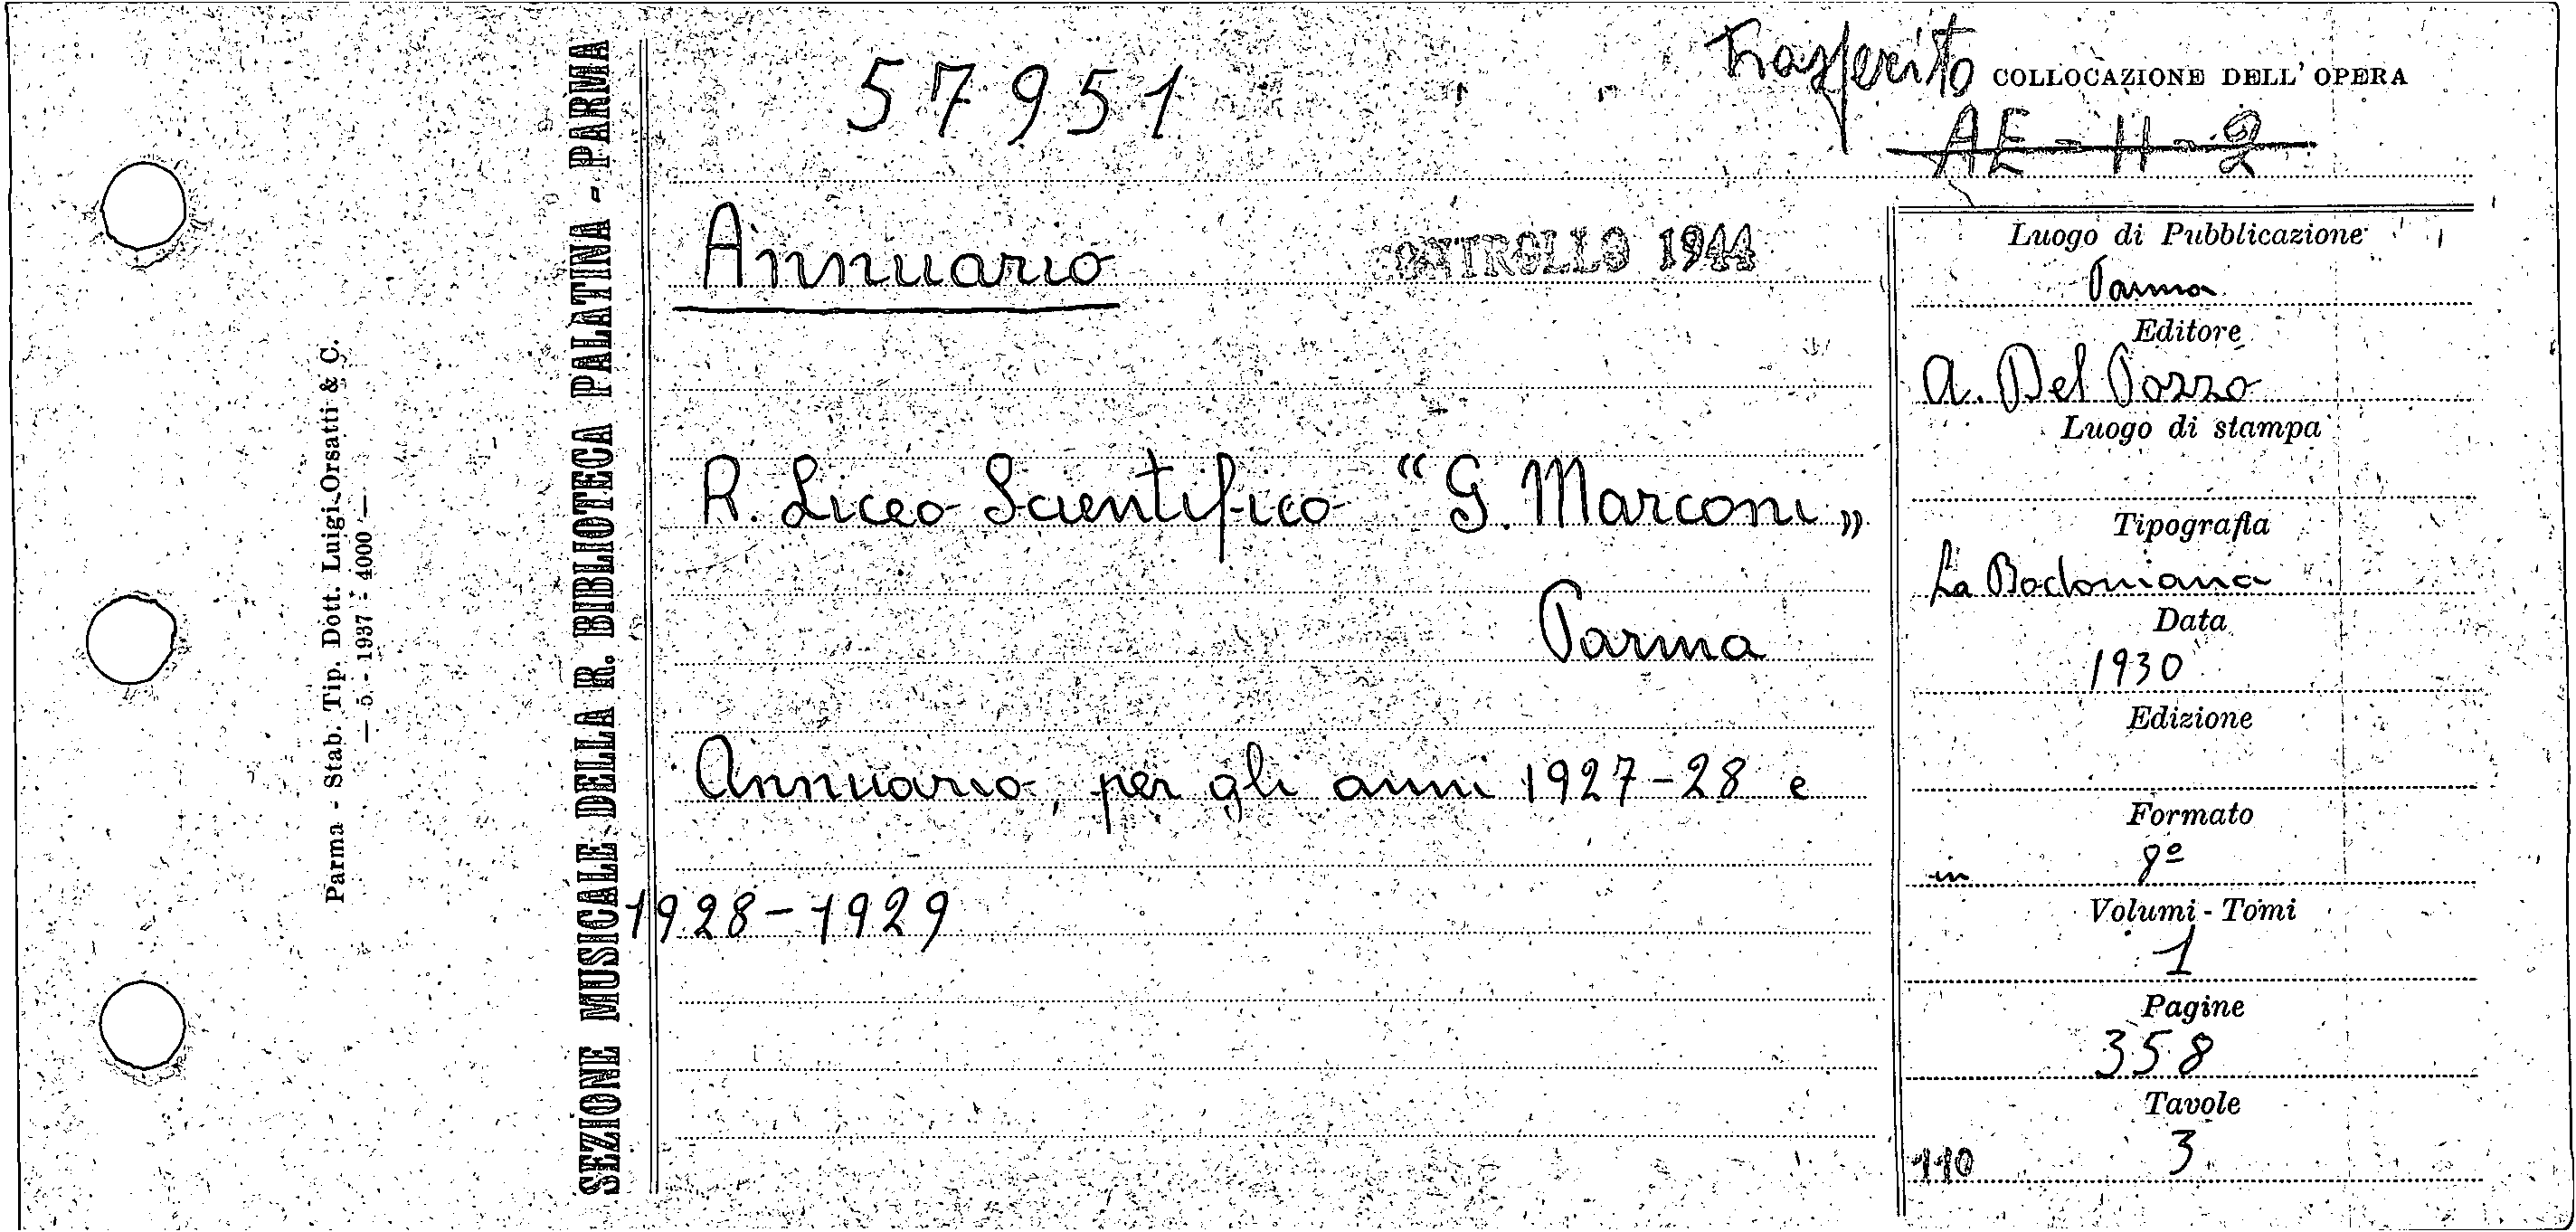 57951
Trasferito COLLOCAZIONE DELL'OPERA
AE - II - 2
Annuario
CONTROLLO 1944
R. Liceo Scientifico "G. Marconi"
Parma
Annuario, per gli anni 1927-28 e
1928-1929
Luogo di Pubblicazione
Parma
Editore
A. Del Pozzo
Luogo di stampa
Tipografia
La Bodoniana
Data
1930
Edizione
Formato
in 8º
Volumi - Tomi
1
Pagine
358
Tavole
3
110
SEZIONE MUSICALE DELLA R. BIBLIOTECA PALATINA - PARMA
Parma - Stab. Tip. Dott. Luigi Orsatti & C.
— 5 - 1937 - 4000 —